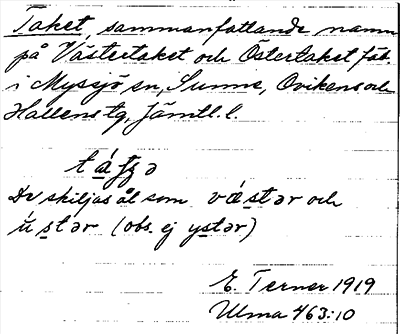 Taket, sammanfattande namn
på Västertaket och Östertaket fäb.
i Myssjö sn, Sunne, Ovikens och
Hallens tg, Jämtl. l.
De skiljas åt som västər och
ústər (obs. ej ystər)
E. Terner 1919
Ulma 463:10